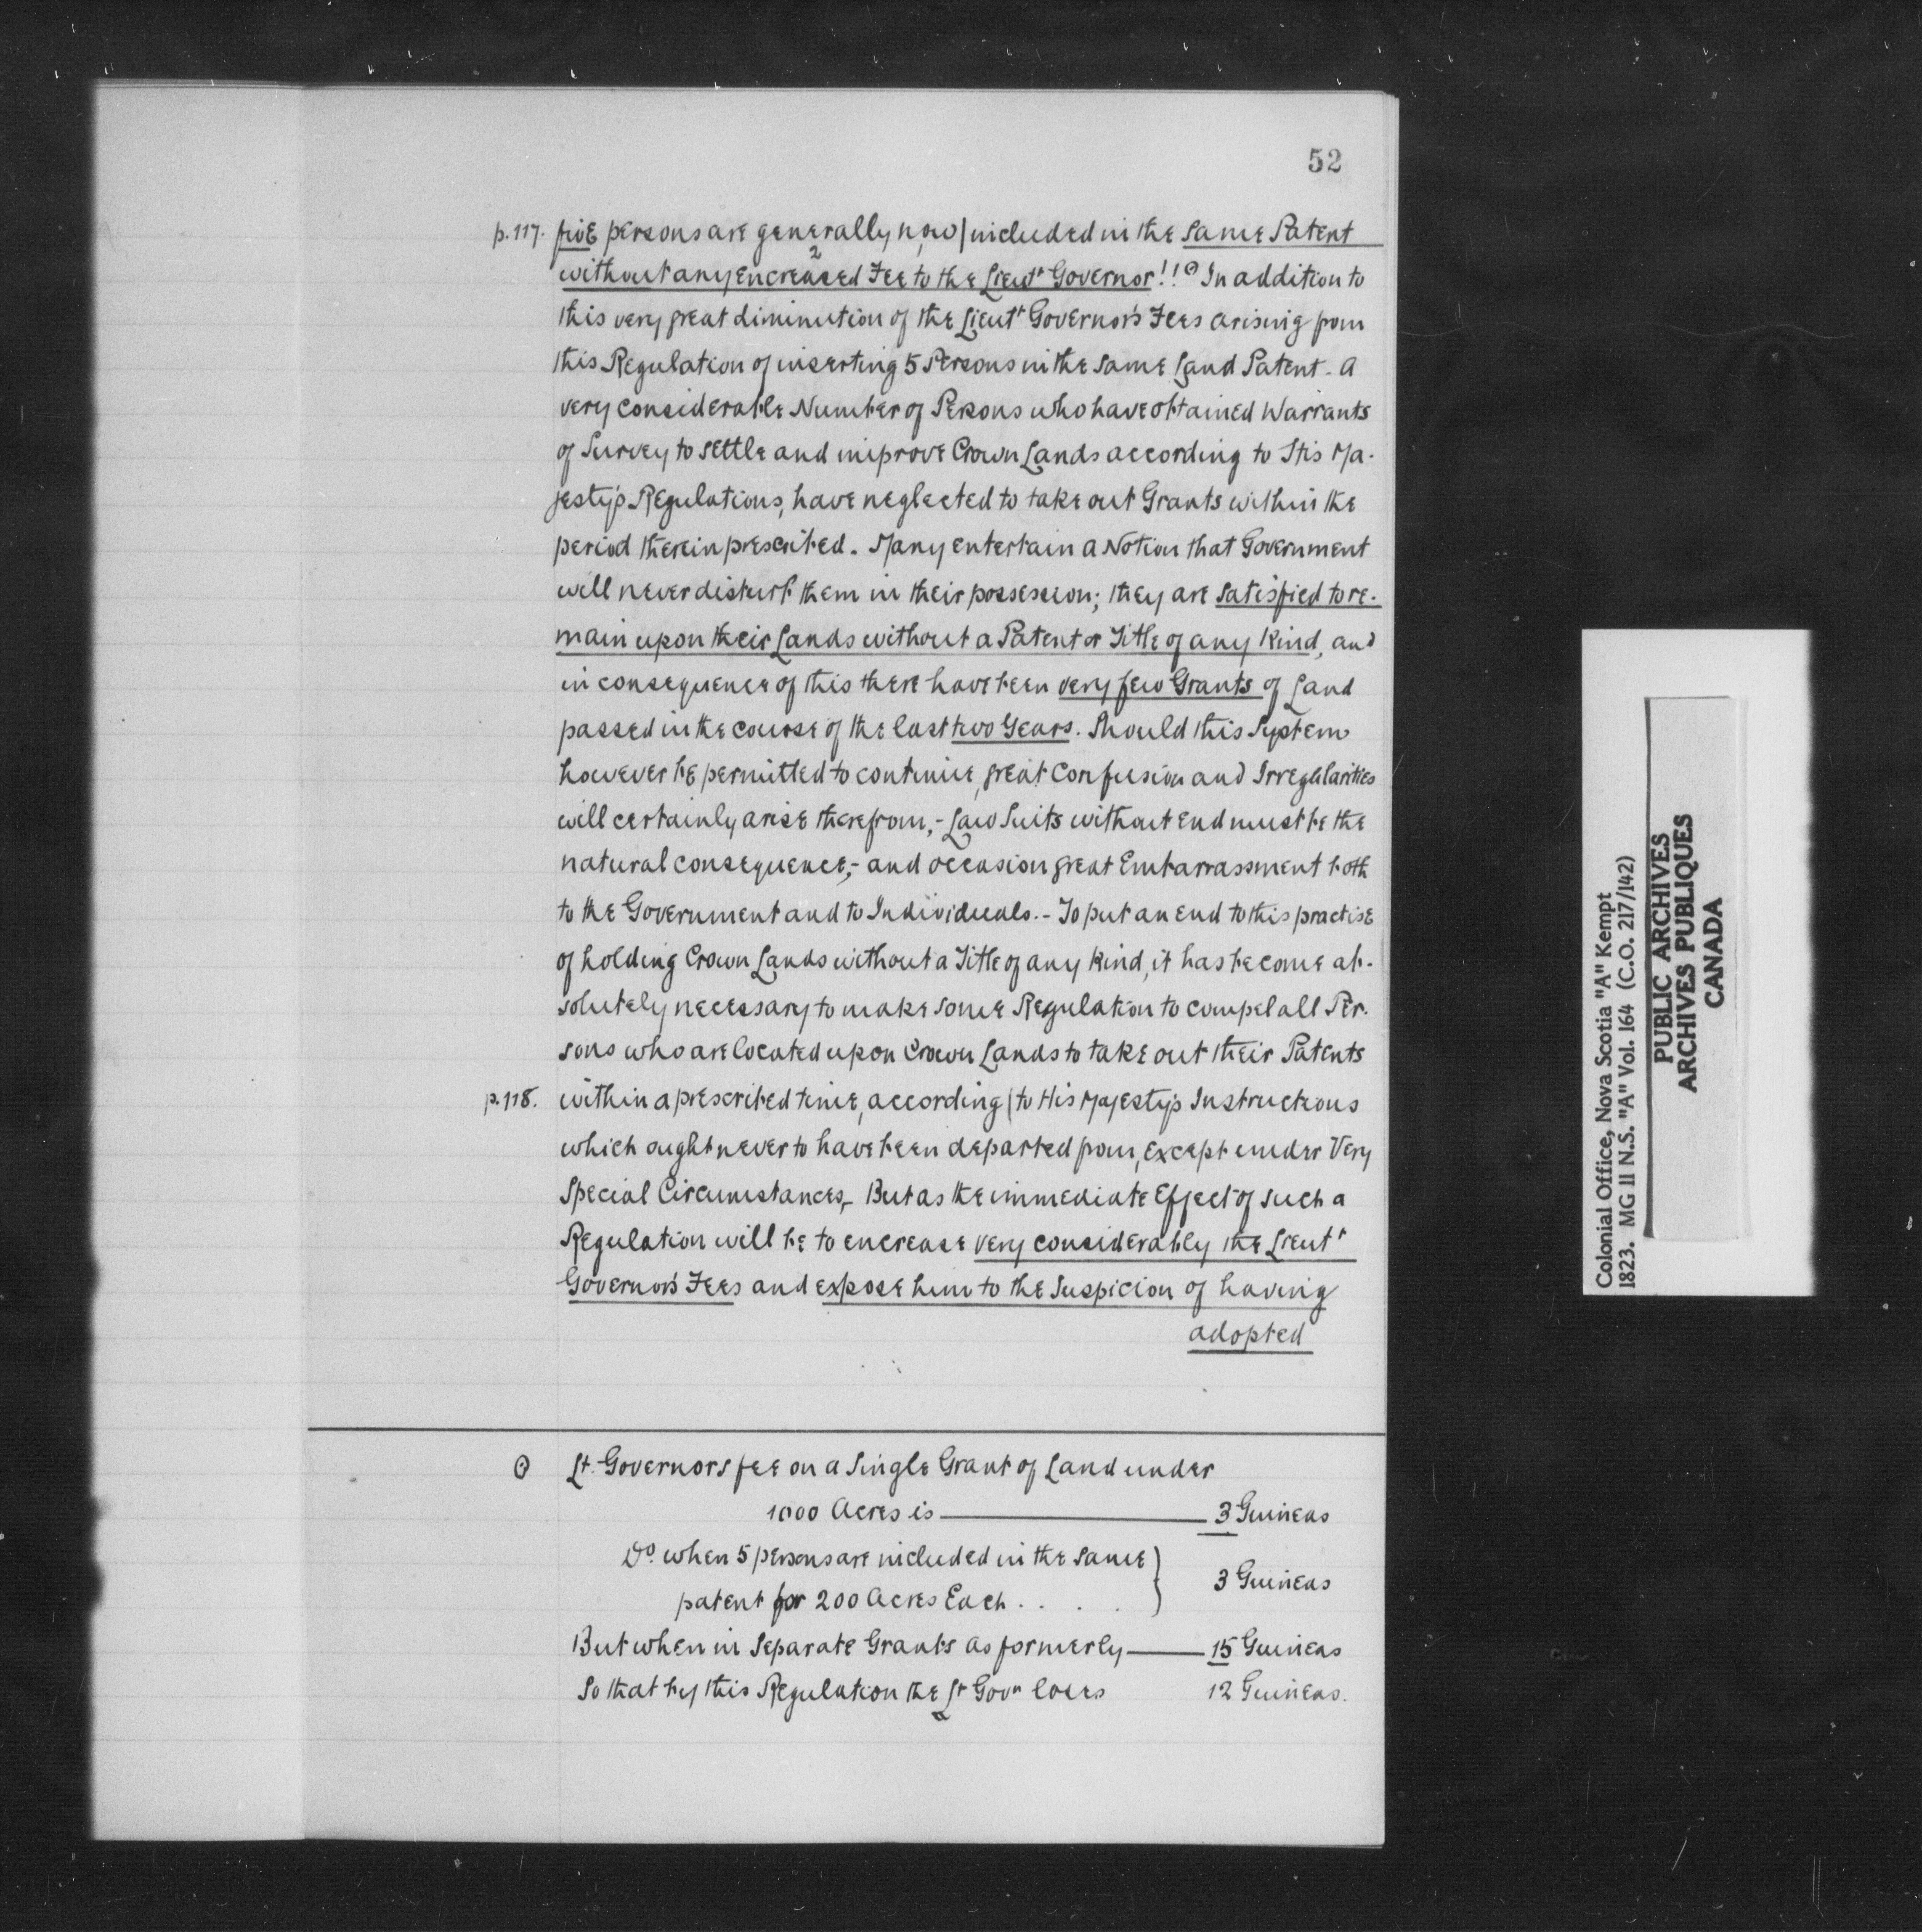 52
p. 117. five persons are generally now | included in the same Patent
without any encreased Fee to the Lieut Governor!! ⊙ In addition to
this very great diminution of the Lieut Governor's Fees arising from
this Regulation of inserting 5 Persons in the same Land Patent - A
very considerable Number of Persons who have obtained Warrants
of Survey to settle and improve Crown Lands according to His Ma-
jesty's Regulations, have neglected to take out Grants within the
period therein prescribed. Many entertain a Notion that Government
will never disturb them in their possession; they are satisfied to re-
main upon their Lands without a Patent or Title of any kind, and
in consequence of this there have been very few Grants of Land
passed in the course of the last two Years. Should this System
however be permitted to continue, great Confusion and Irregularities
will certainly arise therefrom, - Law Suits without end must be the
natural consequence, - and occasion great Embarrassment both
to the Government and to Individuals. - To put an end to this practise
of holding Crown Lands without a Title of any kind, it has become ab-
solutely necessary to make some Regulation to compel all Per-
sons who are located upon Crown Lands to take out their Patents
p. 118. within a prescribed time, according | to His Majesty's Instructions
which ought never to have been departed from, except under Very
Special Circumstances, - But as the immediate Effect of such a
Regulation will be to encrease very considerably the Lieut
Governor's Fees and expose him to the Suspicion of having
adopted
⊙ Lt. Governors fee on a Single Grant of Land under
1000 Acres is — 3 Guineas
Do. when 5 persons are included in the same
patent for 200 Acres Each . . . . } 3 Guineas
But when in Separate Grants as formerly — 15 Guineas
So that by this Regulation the Lt Govn loses 12 Guineas.
Colonial Office, Nova Scotia "A" Kempt
1823. MG 11 N.S. "A" Vol. 164 (C.O. 217/142)
PUBLIC ARCHIVES
ARCHIVES PUBLIQUES
CANADA